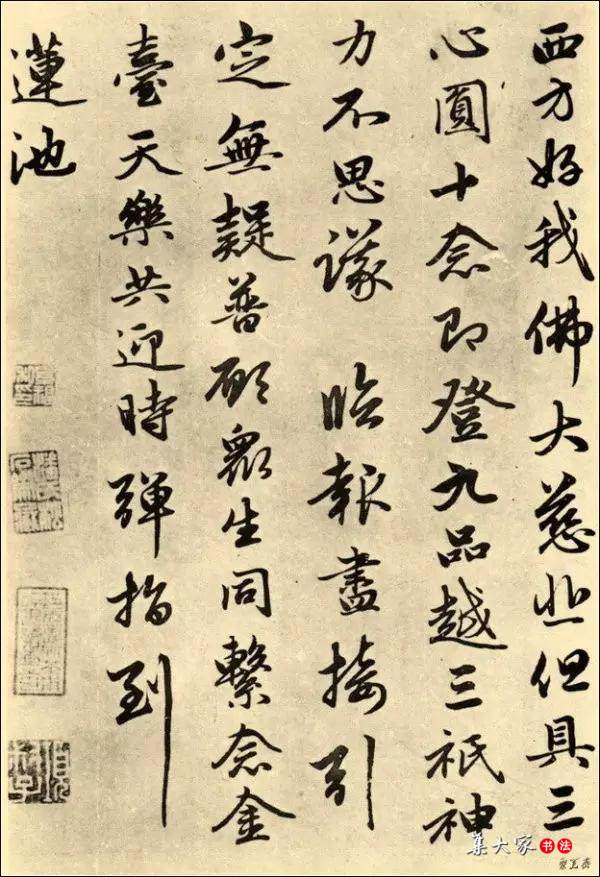 西方好我佛大慈悲但具三
心圓十念即登九品越三祇神
力不思議 臨報盡接引
定無疑普願衆生同繫念金
臺天樂共迎時彈指到
蓮池
集大家书法